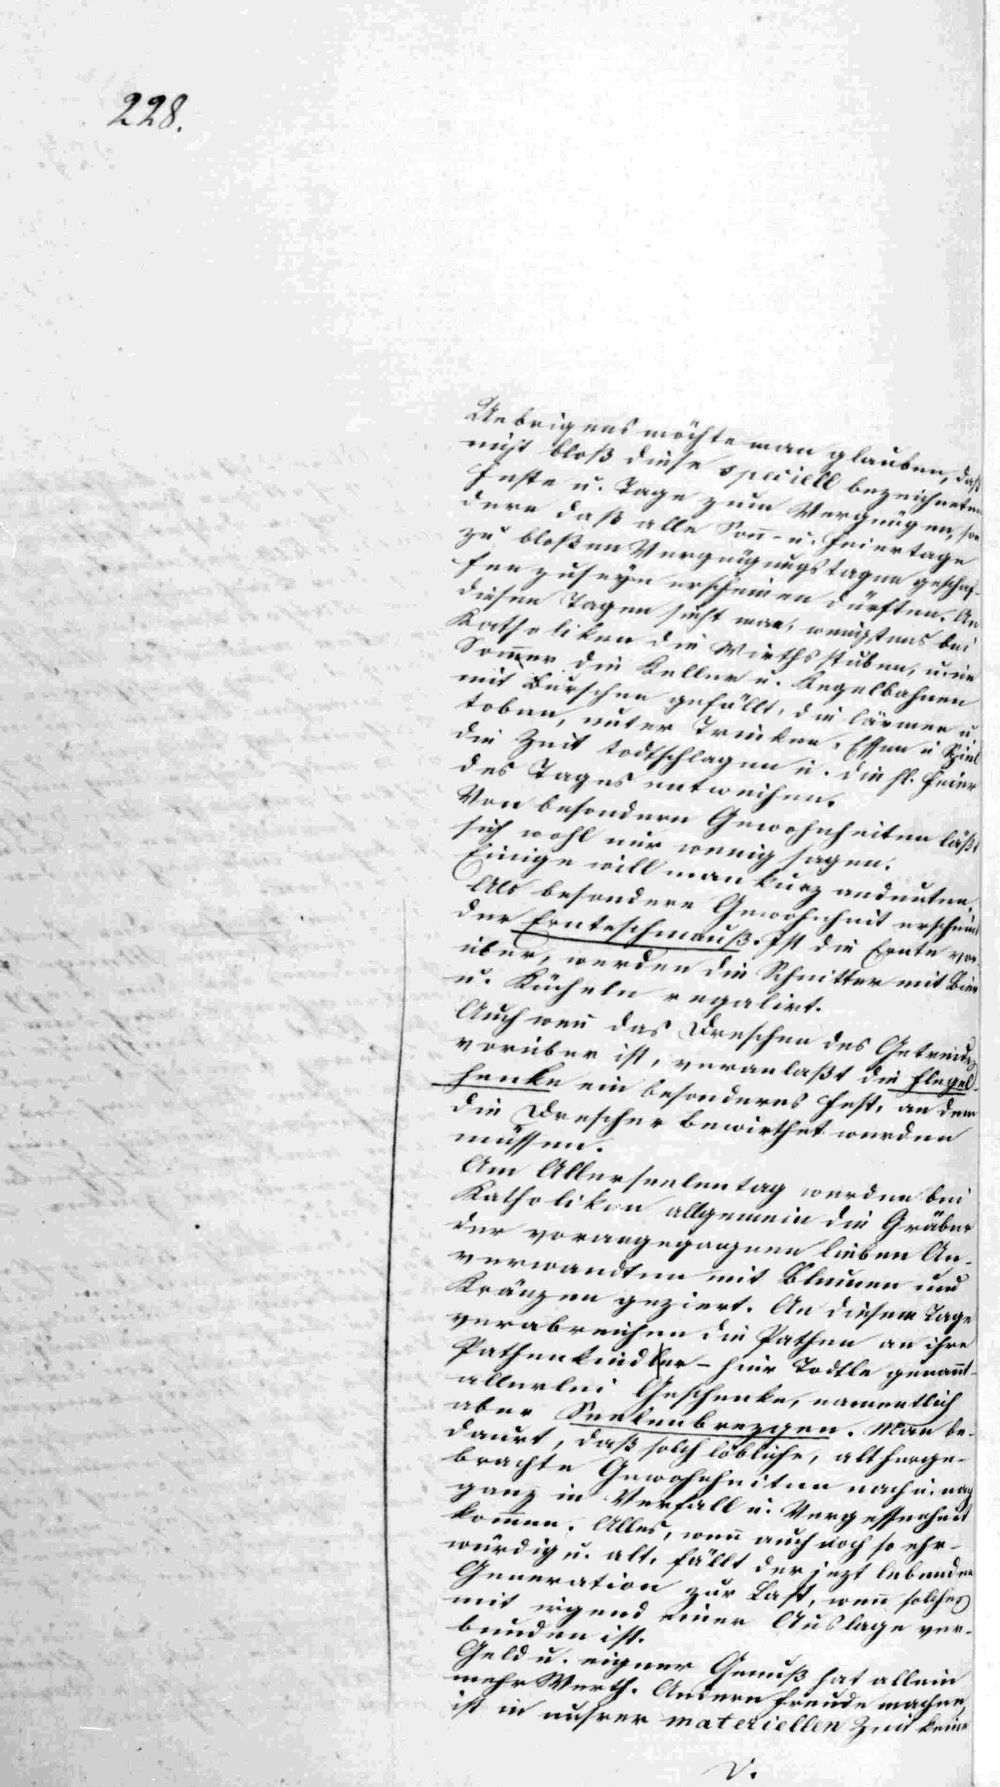 228.
Uebrigens möchte man glauben, daß
nicht bloß diese speciell bezeichneten
Feste u. Tage zum Vergnügen, son
dern daß alle Son̄- u. Feiertage
zu bloßen Vergnügungstagen geschaf-
fen zuseyn erscheinen dürften. An
diesen Tagen sieht man, wenigstens bei
Katholiken die Wirthsstuben, u. im
Som̄er die Keller u. Kegelbahnen
mit Burschen gefüllt, die lärmen u.
toben, unter Trinken, Essen u Spiel
die Zeit todtschlagen u. die hl. Feier
des Tages entweihen.
Von besondern Gewohnheiten läßt
sich wohl nur wenig sagen.
Einige will man kurz andeuten.
Als besondere Gewohnheit erscheint
der Ernteschmauß. Ist die Ernte vor-
über, werden die Schnitter mit Bier
u. Kücheln regalirt.
Auch wen̄ das Dreschen des Getreides
vorüber ist, veranlaßt die Flegel-
henke ein besonderes Fest, an dem
die Drescher bewirthet werden
müssen.
Am Allerseelentag werden bei
Katholiken allgemein die Gräber
der vorangegangenen lieben An-
verwandten mit Blumen und
Kränzen geziert. An diesem Tage
verabreichen die Pathen an ihre
Pathenkinder - hier Dodtle genan̄t -
allerlei Geschenke, namentlich
aber Seelenbrezgen. Man be-
daurt, daß solch löbliche, altherge-
brachte Gewohnheiten nach u. nach
ganz in Verfall u. Vergessenheit
kom̄en. Alles, wen̄ auch noch so ehr-
würdig u. alt, fällt der jezt lebenden
Generation zur Last, wen̄ solches
mit irgend einer Auslage ver-
bunden ist.
Geld u. eigner Genuß hat allein
mehr Werth. Andern Freude machen,
ist in unsrer materiellen Zeit keine